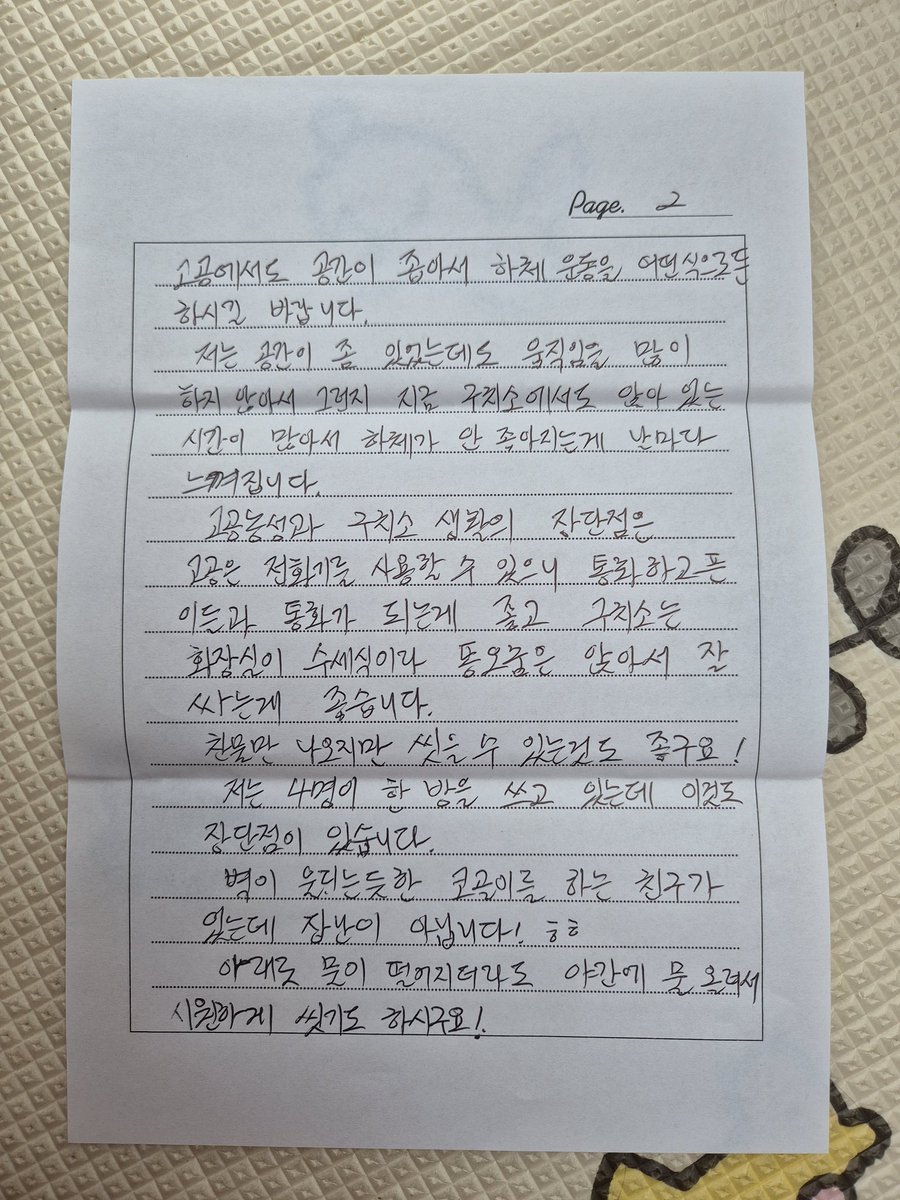 Page. 2
고공에서도 공간이 좁아서 하체 운동을 어떤식으로든
하시길 바랍니다.
저는 공간이 좀 있었는데도 움직임을 많이
하지 않아서 그런지 지금 구치소에서도 앉아 있는
시간이 많아서 하체가 안 좋아지는게 날마다
느껴집니다.
고공농성과 구치소 생활의 장단점은
고공은 전화기를 사용할 수 있으니 통화하고픈
이들과 통화가 되는게 좋고 구치소는
화장실이 수세식이라 똥오줌은 앉아서 잘
싸는게 좋습니다.
찬물만 나오지만 씻을 수 있는것도 좋구요!
저는 4명이 한 방을 쓰고 있는데 이것도
장단점이 있습니다.
벽이 웃디는듯한 코골이를 하는 친구가
있는데 장난이 아닙니다! ㅎㅎ
아래로 물이 떨어지더라도 야간에 물 올려서
시원하게 씻기도 하시구요!